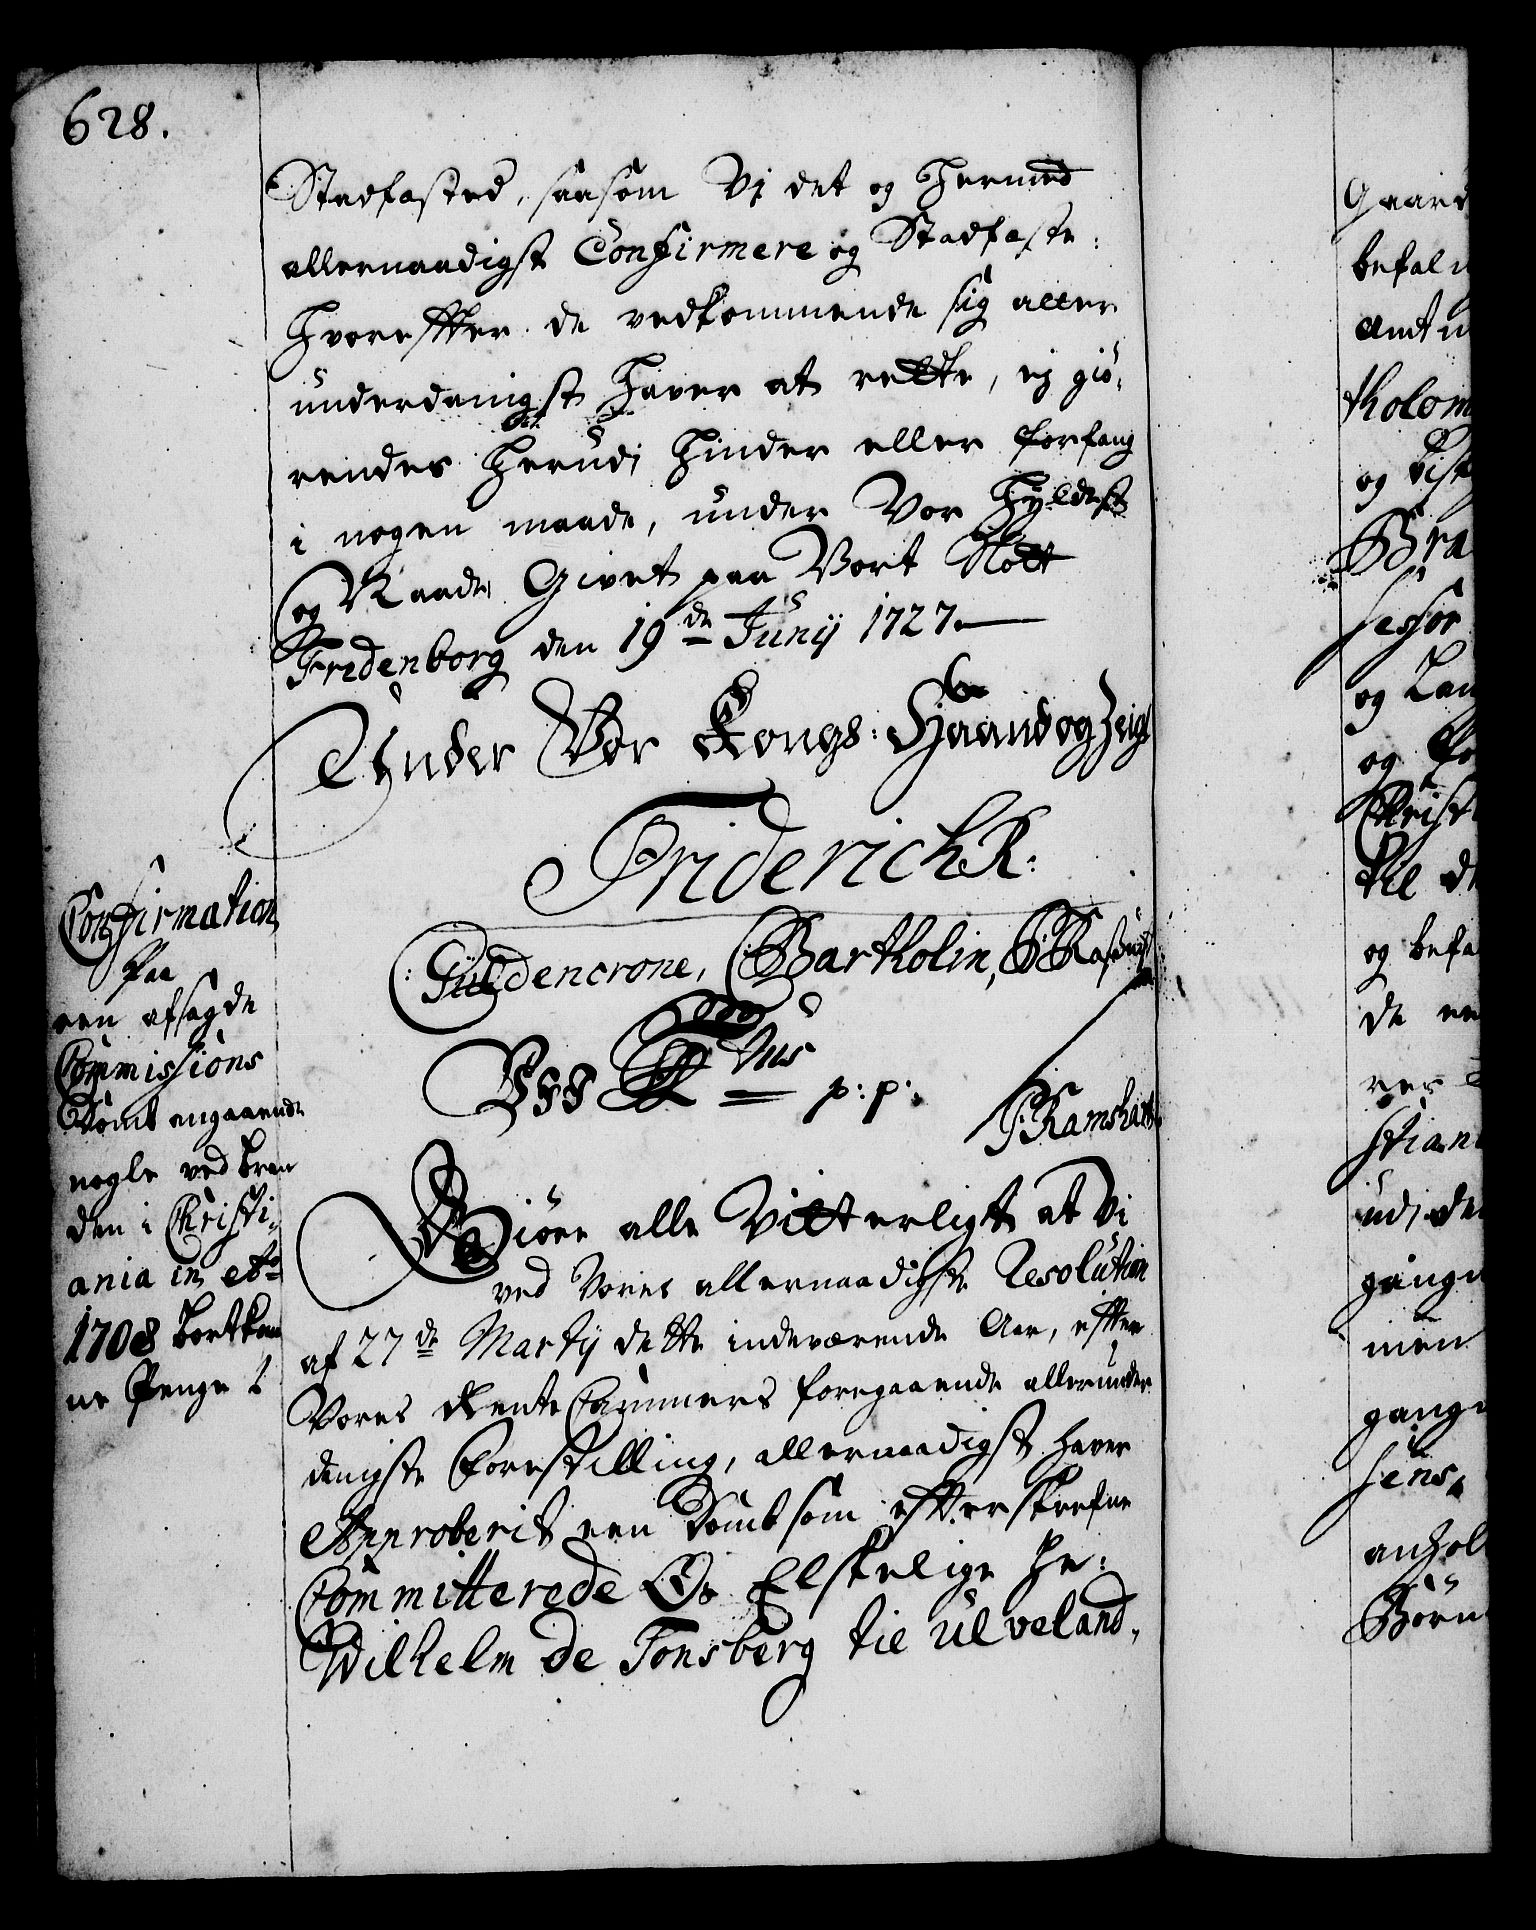 628.
Stadfæsted, saasom Vj det og Hermed
allernaadigst Confirmere og Stadfæste:
Hvorefter de vedkommende sig aller
underdanigst Haver at rette, ej giø:
rendes Herudj Hinder eller forfang
i nogen maade, under Vor Hyldest
og Naade, Givet paa Vort Slott
Fredenborg den 19de Junij 1727.
Under Vor Kongl: Haand og Zeigl
Friderich R:
Güldencrone, C Bartholin,
Vii F 4tus p: p:
J: Ramshart
Confirmation
paa
een afsagde
Commissions
Domb angaaende
nogle ved bran
den i Christi-
ania in Ao
1708 bortkom
ne Penge
Giøre alle Vitterligt at Vi
ved Vores allernaadigste Resolution
af 27de Martij dette indeværende Aar, efter
Vores Rente Cammers foregaaende allerunder
danigste Forestilling, allernaadigst haver
Approberit een Domb som efterskrefne
Committerede Os Elskelige He:
Wilhelm de Tonsberg til Ulveland,
Gaard
befal
Amt
tholom
og Bis
Bra
sessor
og Lan
og
Christ
til d
og befa
de
res
stian
udj de
gange
men
gange
sens,
anhol
Børn